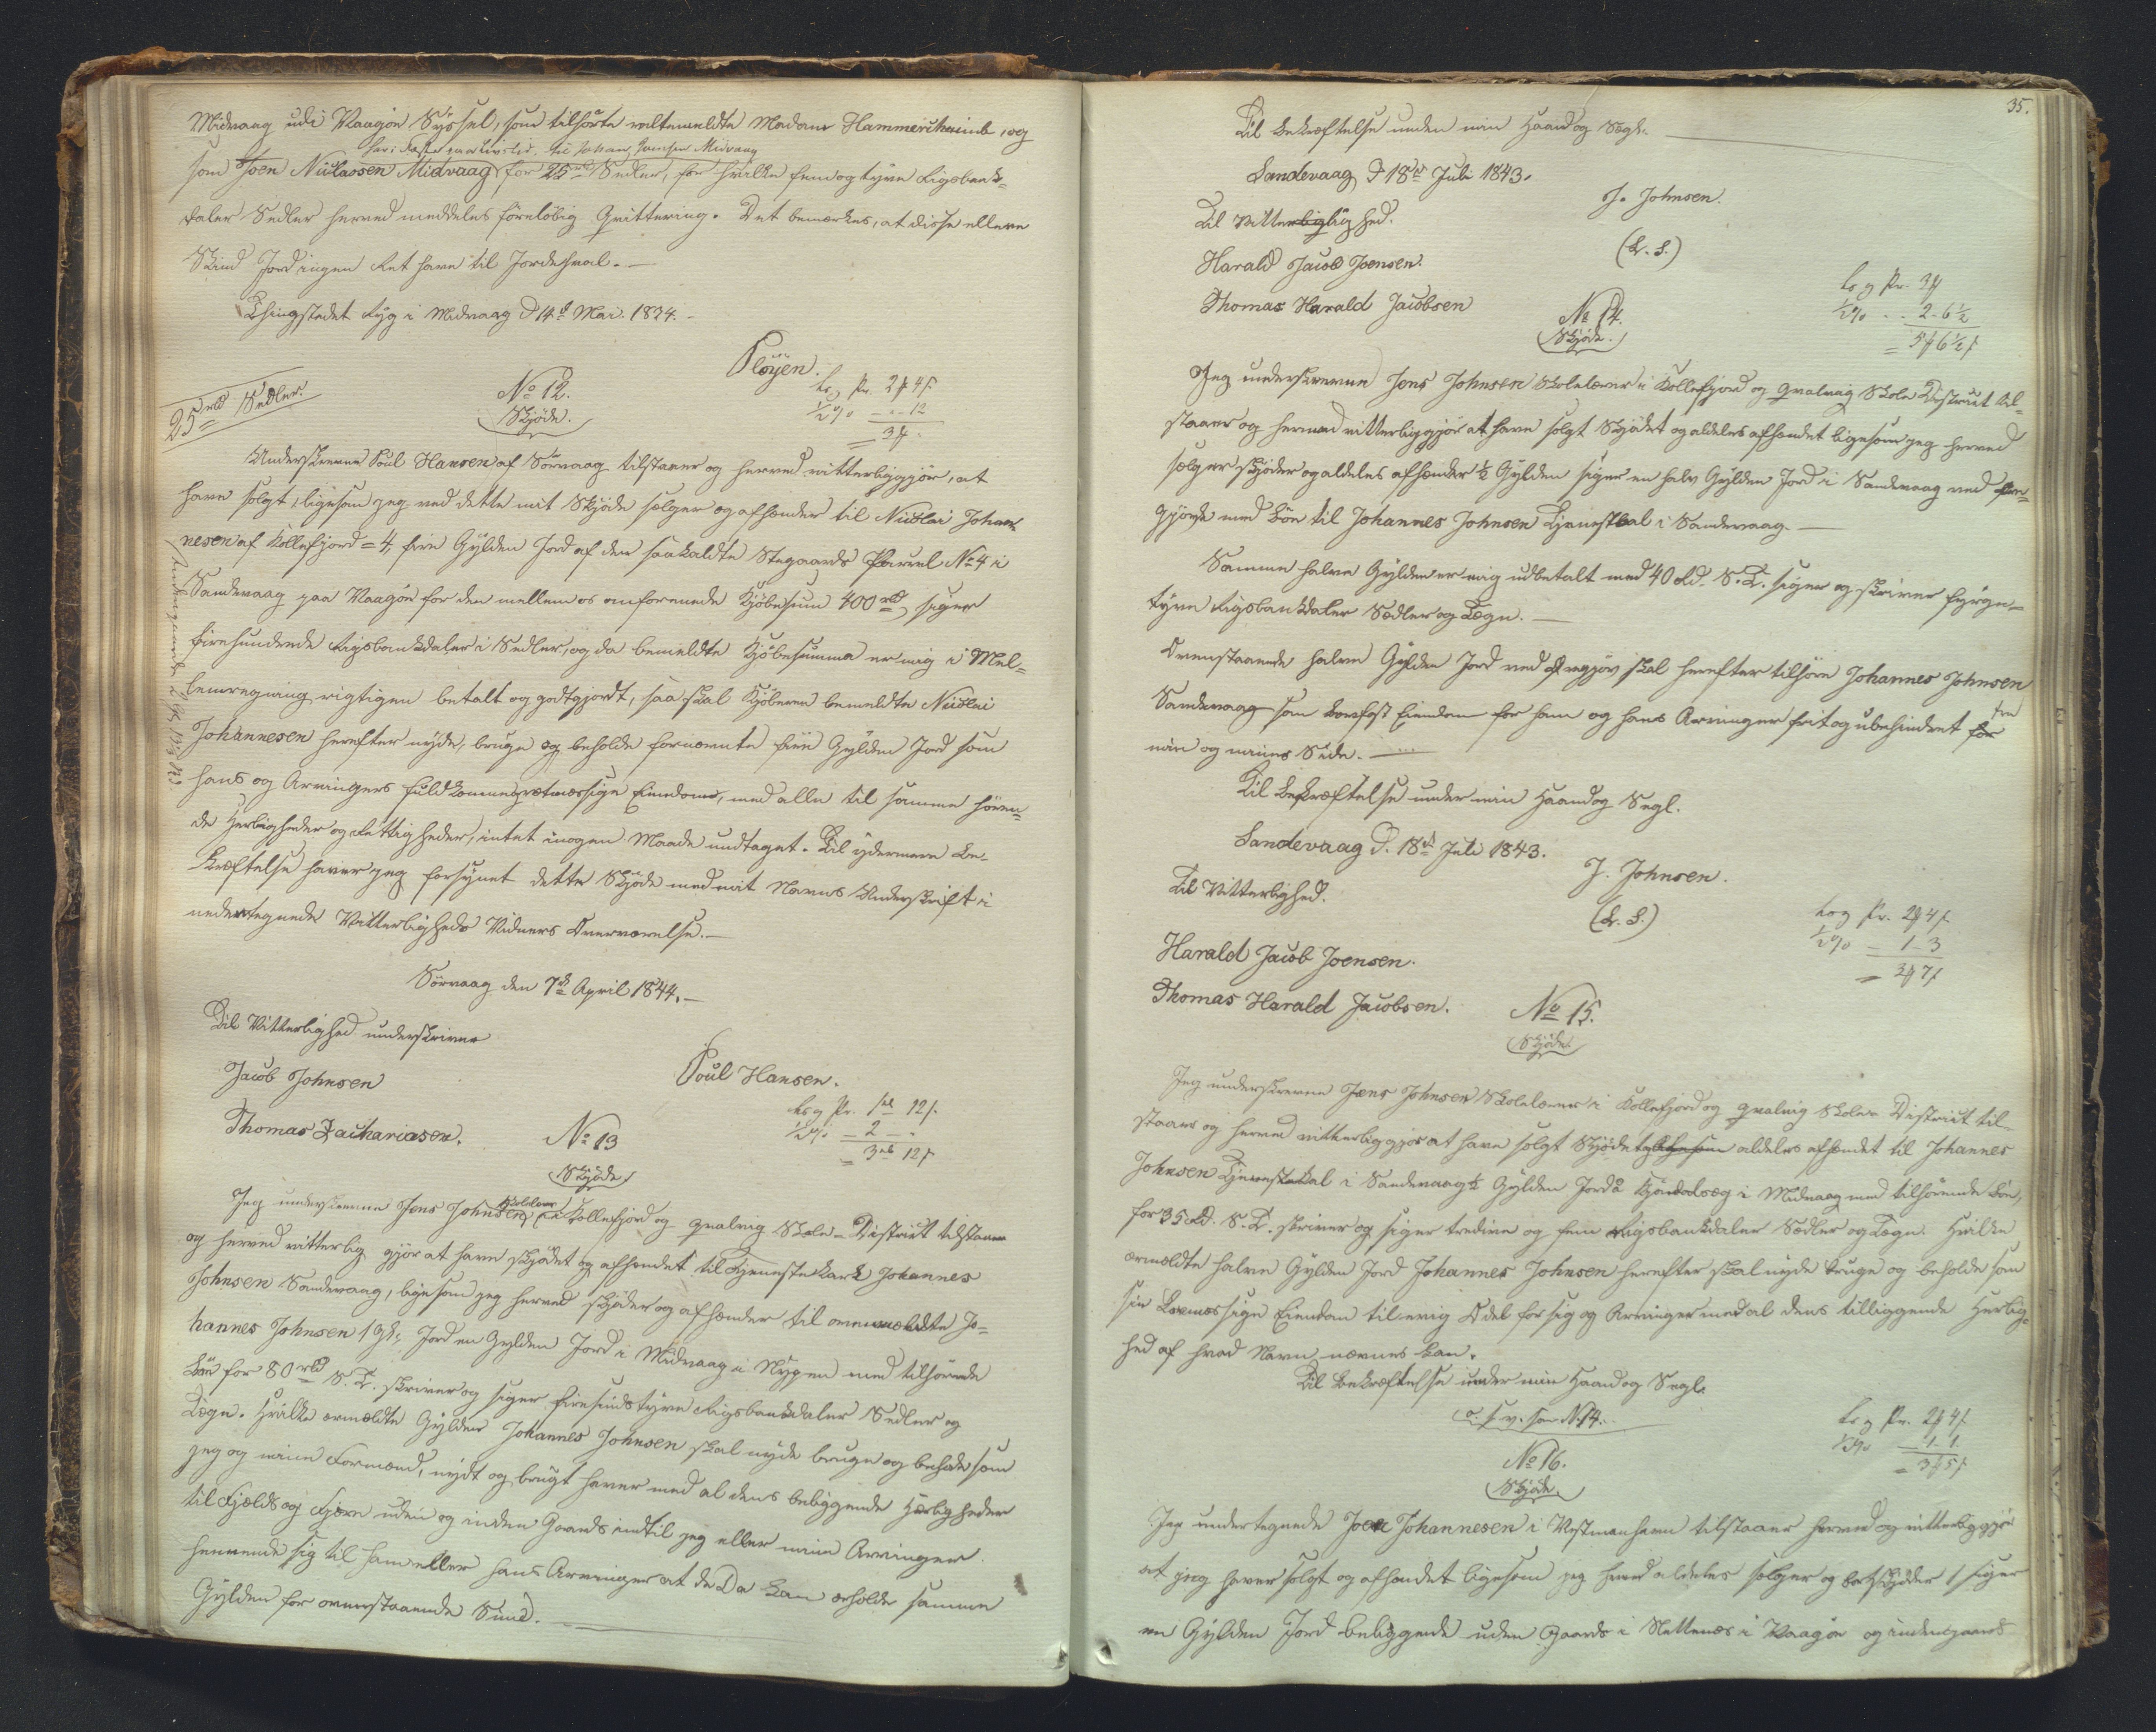 Midvaag udi Waagøe Syssel, som tilhørte velbemeldte Madame Hammershaimb, og
har i Fæste paa Livstid. til Johan Joensen Midvaag
som Joen Niclassen Midvaag for 25 rbd Sedler, for hvilke fem og tyve Rigsbank-
daler Sedler herved meddeles foreløbig Qvittering. Det bemærkes, at disse elleve
Skind Jord ingen Ret have til Jordehval.—
Thingstedet Ryg i Midvaag d 14de Mai. 1834.
Pløyen.
25 rbd Sedler.
No 12.
Skjøde.
½ % - - 12
Underskrevne Poul Hansen af Sørvaag tilstaaer og herved vitterliggjør, at
have solgt, ligesom jeg ved dette mit Skjøde sælger og afhænder til Nicolai Johan-
nesen af Kollefjord = 4, fire Gylden Jord af den saakaldte Stegaards Parcel No 4 i
Sandevaag paa Waagøe for den mellem os omforenede Kjøbesum 400 rbd, siger
firehundrede Rigsbankdaler i Sedler, og da bemeldte Kjøbesumma er mig i Mel-
lemregning rigtigen betalt og godtgjordt, saa skal Kjøberen bemeldte Nicolai
Johannesen herefter nyde, bruge og beholde fornævnte fire Gylden Jord som
hans og Arvingers fuldkomne retmæssige Eiendom, med alle til samme høren-
de Herligheder og Rettigheder, intet i nogen Maade undtaget. Til ydermere Be-
kræftelse haver jeg forsynet dette Skjøde med mit Navns Underskrift i
nedentegnede Vitterligheds Vidners Overværelse.—
Sørvaag den 7de April 1844.—
Til Vitterlighed underskriver
Jacob Johnsen
Poul Hansen.
Thomas Zachariasen.
No 13
Skjøde
Jeg underskrevne Jens Johnsen Skolelærer i Kollefjord og Qvalvig Skole-District tilstaaer
og herved vitterlig gjør at have skjødet og afhændet til Tjenestekarl Johannes
Johnsen Sandevaag, ligesom jeg herved skjøder og afhænder til ovenmeldte Jo-
hannes Johnsen 1 Gl. Jord en Gylden Jord i Midvaag i Rygen med tilhørende
Bøe for 80 rbd S. T. skriver og siger firesindstyve Rigsbankdaler Sedler og
Tegn. Hvilke ermeldte Gylden Johannes Johnsen skal nyde bruge og beholde som
jeg og mine Formænd, nydt og brugt haver med al dens beliggende Herligheder
til Fjelds og Fjære uden og inden Gaards indtil jeg eller mine Arvinger
henvende sig til ham eller hans Arvinger at de Da kan erholde samme
Gylden for ovenstaaende Summa.
35.
Til Bekræftelse under min Haand og Segl.
Sandevaag d 18de Juli 1843.
J. Johnsen.
Til Vitterlighed.
(L. S.)
Harald Jacob Joensen.
Thomas Harald Jacobsen
No 14.
Skjøde.
½ % - - 2 - 6 ½
Jeg underskrevne Jens Johnsen Skolelærer i Kollefjord og Qvalvig Skole District til-
staaer og hermed vitterliggjør at have solgt Skjødet og aldeles afhændet ligesom jeg herved
sælger skjøder og aldeles afhænder ½ Gylden siger en halv Gylden Jord i Sandevaag ved
gjørde med Bøe til Johannes Johnsen Tjenestkal i Sandevaag.—
Samme halve Gylden er mig udbetalt med 40 Rd. S. T. siger og skriver fyrge-
tyve Rigsbankdaler Sedler og Tegn.—
Ovenstaaende halve Gylden Jord ved skal herefter tilhøre Johannes Johnsen
Sandevaag som Eiendom for ham og hans Arvinger frit og ubehindret fra
min og mines Side.—
Til Bekræftelse under min Haand og Segl.
Sandevaag d. 18de Juli 1843.
J. Johnsen.
Til Vitterlighed.
(L. S.)
Harald Jacob Joensen.
½ % - 1 - 3
Thomas Harald Jacobsen.
No 15.
Skjøde
Jeg underskrevne Jens Johnsen Skolelærer i Kollefjord og Qvalvig Skole-District til-
staaer og herved vitterliggjør at have solgt Skjødet aldeles afhændet til Johannes
Johnsen Tjenestekal i Sandevaag ½ Gylden Jord i Midvaag med tilhørende Bøe,
for 35 Rd. S. T. skriver og siger tredive og fem Rigsbankdaler Sedler og Tegn. Hvilke
ermeldte halve Gylden Jord Johannes Johnsen herefter skal nyde bruge og beholde som
sin Eiendom til evig Odel for sig og Arvinger med al dens tilliggende Herlig-
hed af hvad Navn nævnes kan.
Til Bekræftelse under min Haand og Segl.
o. s. v. som No 14.
No 16.
Skjøde.
Jeg undertegnede Joen Johannesen i Vestmanhavn tilstaaer herved og vitterliggjør
at jeg haver solgt og afhændet ligesom jeg herved aldeles sælger og bortskjøder 1 siger
en Gylden Jord beliggende uden Gaards i Slettenæs i Waagøe og indengaards